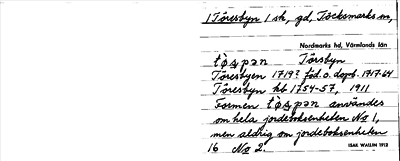 1 Töresbyn 1 sk, gd, Töcksmarks sn,
Nordmarks hd, Värmlands län
tø̀spən Törsbyn
Töresbyen 1719? föd. o. dopb. 1717-64
Töresbyn hb 1754-57, 1911
Formen tø̀spən användes
om hela jordeboksenheten No 1,
men aldrig om jordeboksenheten
16 No 2.
ISAK WALLIN 1912